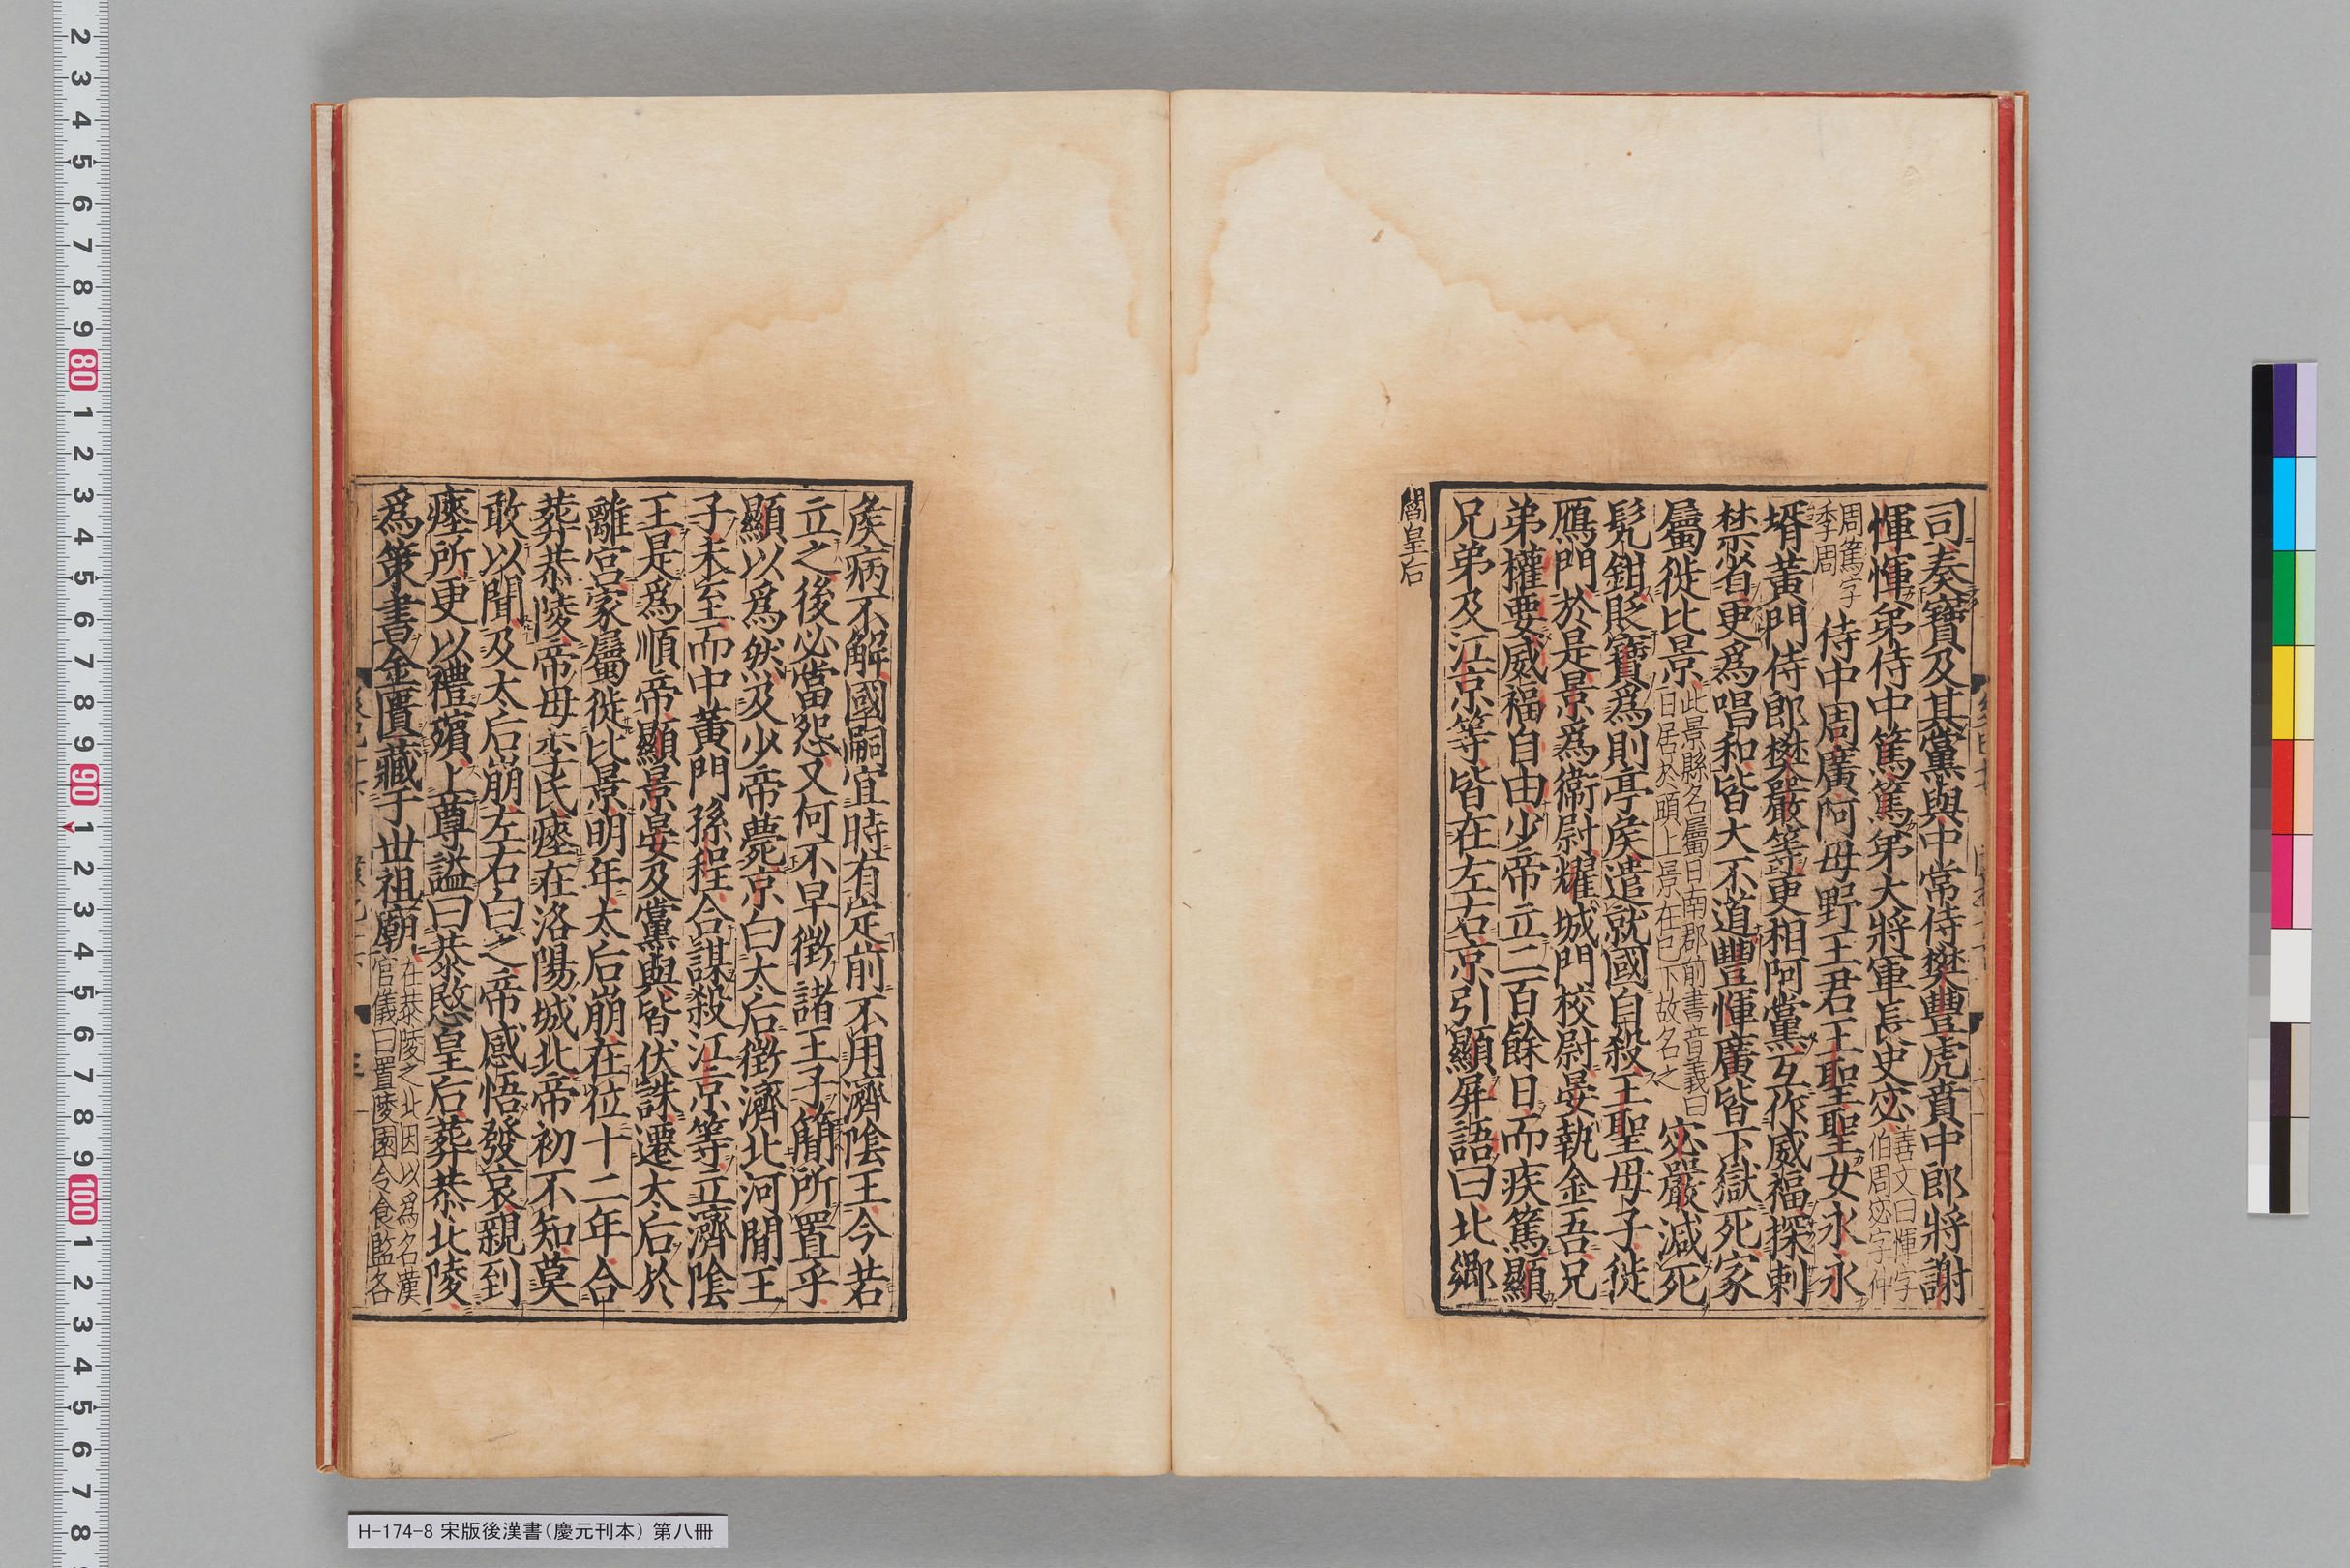 司奏寶及其黨與中常侍樊豐虎賁中郎將謝
惲惲弟侍中篤篤弟大將軍長史宓善文曰惲字伯周宓字仲
周篤字季周侍中周廣阿母野王君王聖聖女永永
壻黃門侍郎樊嚴等更相阿黨互作威福探刺
禁省更爲唱和皆大不道豐惲廣皆下獄死家
屬徙比景此景縣名屬日南郡前書音義曰日居於頭上景在已下故名之宓嚴減死
髡鉗貶寶爲則亭侯遣就國自殺王聖母子徙
鴈門於是景爲衞尉耀城門校尉晏執金吾兄
弟權要威福自由少帝立二百餘日而疾篤顯
兄弟及江京等皆在左右京引顯屏語曰北鄉
閻皇后
侯病不解國嗣宜時有定前不用濟陰王今若
立之後必當怨又何不早徵諸王子簡所置乎
顯以爲然及少帝薨京白太后徵濟北河間王
子未至而中黃門孫程合謀殺江京等立濟陰
王是爲順帝顯景晏及黨與皆伏誅遷太后於
離宮家屬徙比景明年太后崩在位十二年合
葬恭陵帝母李氏瘞在洛陽城北帝初不知莫
敢以聞及太后崩左右白之帝感悟發哀親到
瘞所更以禮殯上尊謚曰恭愍皇后葬恭北陵
爲策書金匱藏于世祖廟在恭陵之北因以爲名漢官儀曰置陵園令食監各
H-174-8 宋版後漢書(慶元刊本) 第八冊
2 3 4 5 6 7 8 9 80 1 2 3 4 5 6 7 8 9 90 1 2 3 4 5 6 7 8 9 100 1 2 3 4 5 6 7 8